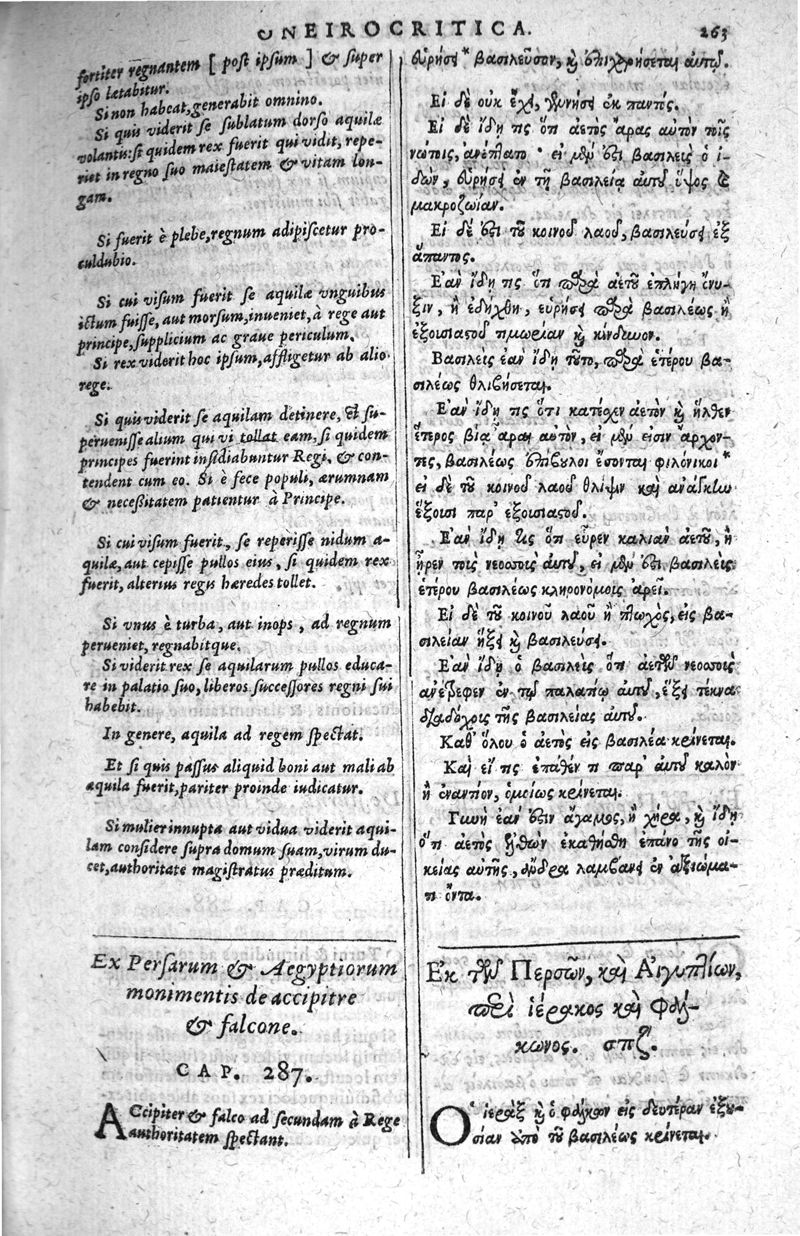 ONEIROCRITICA.
263
fortiter regnantem [ post ipsum ] & super
ipso lætabitur.
Si non habeat, generabit omnino.
Si quis viderit se sublatum dorso aquilæ
volantis: si quidem rex fuerit qui vidit, repe-
riet in regno suo maiestatem & vitam lon-
gam.
Si fuerit è plebe, regnum adipiscetur pro-
culdubio.
Si cui visum fuerit se aquilæ vnguibus
ictum fuisse, aut morsum, inueniet, à rege aut
principe, supplicium ac graue periculum.
Si rex viderit hoc ipsum, affligetur ab alio
rege.
Si quis viderit se aquilam detinere, & su-
peruenisse alium qui vi tollat eam, si quidem
principes fuerint insidiabuntur Regi, & con-
tendent cum eo. Si è fece populi, ærumnam
& necessitatem patientur à Principe.
Si cui visum fuerit, se reperisse nidum a-
quilæ, aut cepisse pullos eius, si quidem rex
fuerit, alterius regis hæredes tollet.
Si vnus è turba, aut inops, ad regnum
perueniet, regnabitque.
Si viderit rex se aquilarum pullos educa-
re in palatio suo, liberos successores regni sui
habebit.
In genere, aquila ad regem spectat.
Et si quis passus aliquid boni aut mali ab
aquila fuerit, pariter proinde iudicatur.
Si mulier innupta aut vidua viderit aqui-
lam considere supra domum suam, virum du-
cet, authoritate magistratus præditum.
Ex Persarum & Aegyptiorum
monimentis de accipitre
& falcone.
CAP. 287.
ACcipiter & falco ad secundam à Rege
authoritatem spectant.
εὑρήσει* βασιλεῦσον, καὶ ἐπιχαρήσεται αὐτῷ.
Εἰ δὲ οὐκ ἔχει, γεννήσει ἐκ παντός.
Εἰ δὲ ἴδῃ τις ὅτι ἀετὸς ἄρας αὐτὸν τοῖς
νώτοις, ἀνέπτατο· εἰ μὲν ἔστι βασιλεὺς ὁ ἰ-
δὼν, εὑρήσει ἐν τῇ βασιλείᾳ αὐτοῦ ὕψος καὶ
μακροζωίαν.
Εἰ δὲ ἔστι τοῦ κοινοῦ λαοῦ, βασιλεύσει ἐξ
ἅπαντος.
Ἐὰν ἴδῃ τις ὅτι παρὰ ἀετοῦ ἐπλήγη ὄνυ-
ξιν, ἢ ἐδήχθη, εὑρήσει παρὰ βασιλέως ἢ
ἐξουσιαστοῦ τιμωρίαν καὶ κίνδυνον.
Βασιλεὺς ἐὰν ἴδῃ τοῦτο, παρὰ ἑτέρου βα-
σιλέως θλιβήσεται.
Ἐὰν ἴδῃ τις ὅτι κατέχεν ἀετὸν καὶ ἦλθεν
ἕτερος βίᾳ ἆραι αὐτὸν, εἰ μὲν εἰσιν ἄρχον-
τες, βασιλέως ἐπίβουλοι ἔσονται φιλόνικοι*
εἰ δὲ τοῦ κοινοῦ λαοῦ θλίψιν καὶ ἀνάγκην
ἕξουσι παρ' ἐξουσιαστοῦ.
Ἐὰν ἴδῃ τις ὅτι εὗρεν καλιὰν ἀετοῦ, ἢ
ᾖρεν τοὺς νεοσσοὺς αὐτοῦ, εἰ μὲν ἔστι βασιλεὺς
ἑτέρου βασιλέως κληρονόμους ἀρεῖ.
Εἰ δὲ τοῦ κοινοῦ λαοῦ ἢ πτωχὸς, εἰς βα-
σιλείαν ἥξει καὶ βασιλεύσει.
Ἐὰν ἴδῃ ὁ βασιλεὺς ὅτι ἀετῶν νεοσσοὺς
ἀνέτρεφεν ἐν τῷ παλατίῳ αὐτοῦ, ἕξει τέκνα
διαδόχους τῆς βασιλείας αὐτοῦ.
Καθ' ὅλου ὁ ἀετὸς εἰς βασιλέα κρίνεται.
Καὶ εἴ τις ἔπαθεν τι παρ' αὐτοῦ καλὸν
ἢ ἐναντίον, ὁμοίως κρίνεται.
Γυνὴ ἐὰν ἔστιν ἄγαμος, ἢ χήρα, καὶ ἴδῃ
ὅτι ἀετὸς ἐλθὼν ἐκαθήσθη ἐπάνω τῆς οἰ-
κείας αὐτῆς, ἄνδρα λαμβάνει ἐν ἀξιώμα-
τι ὄντα.
Ἐκ τῶν Περσῶν, καὶ Αἰγυπτίων,
περὶ ἱέρακος καὶ φάλ-
κωνος. σπζ.
Ὁ ἱέραξ καὶ ὁ φάλκων εἰς δευτέραν ἐξου-
σίαν ἀπὸ τοῦ βασιλέως κρίνεται.